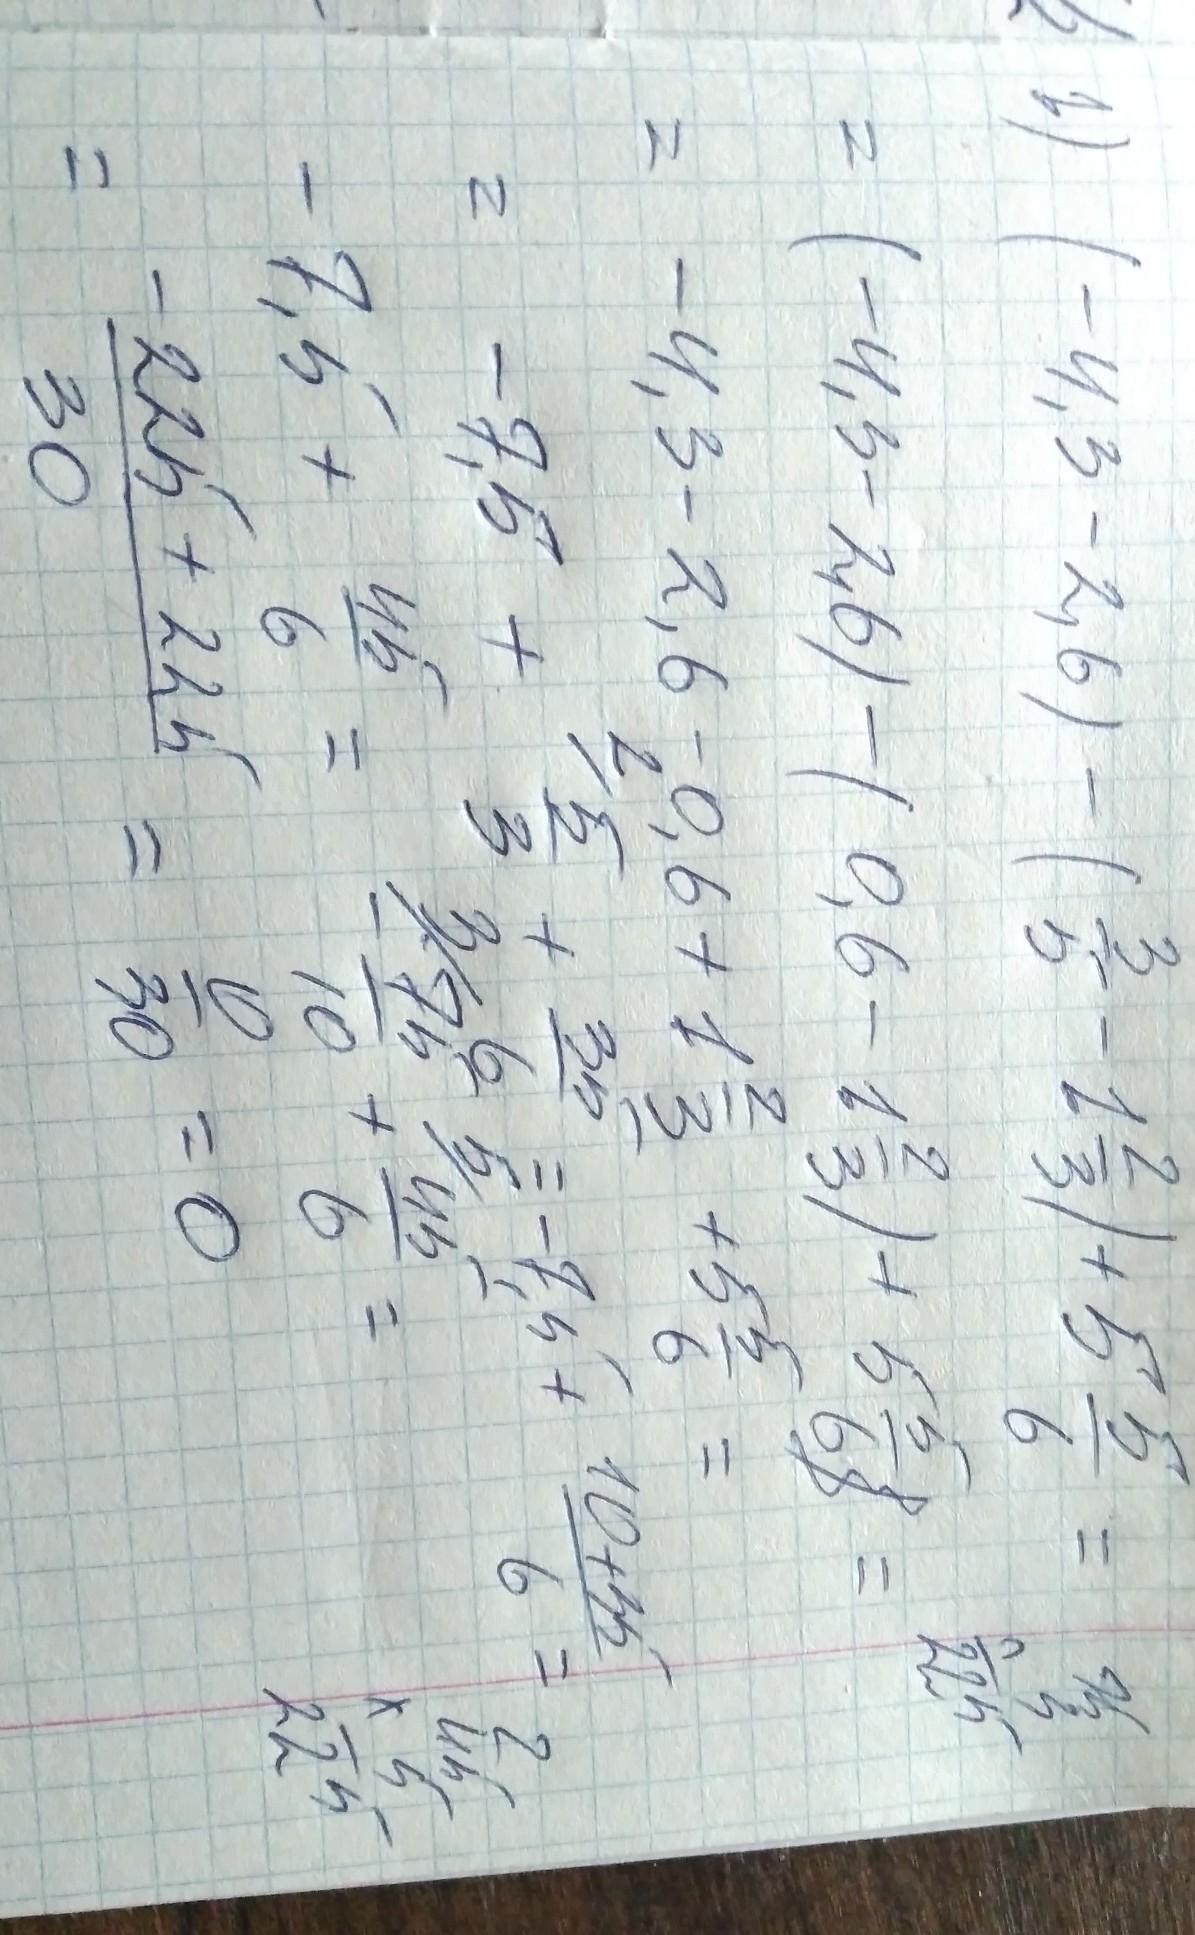 1) (-4,3-2,6) - (3/5 - 1 2/3) + 5 5/6 =
= (-4,3-2,6) - (0,6 - 1 2/3) + 5 5/6 =
= -4,3-2,6-0,6+1 2/3 + 5 5/6 =
= -7,5 + 2/ 5/3 + 35/6 = -7,5 + 10+35/6 =
- 7,5 + 45/6 = 3/ - 75/10 + 5/ 45/6 =
= -225+225/30 = 0/30 = 0
75
3
225
2
45
× 5
225